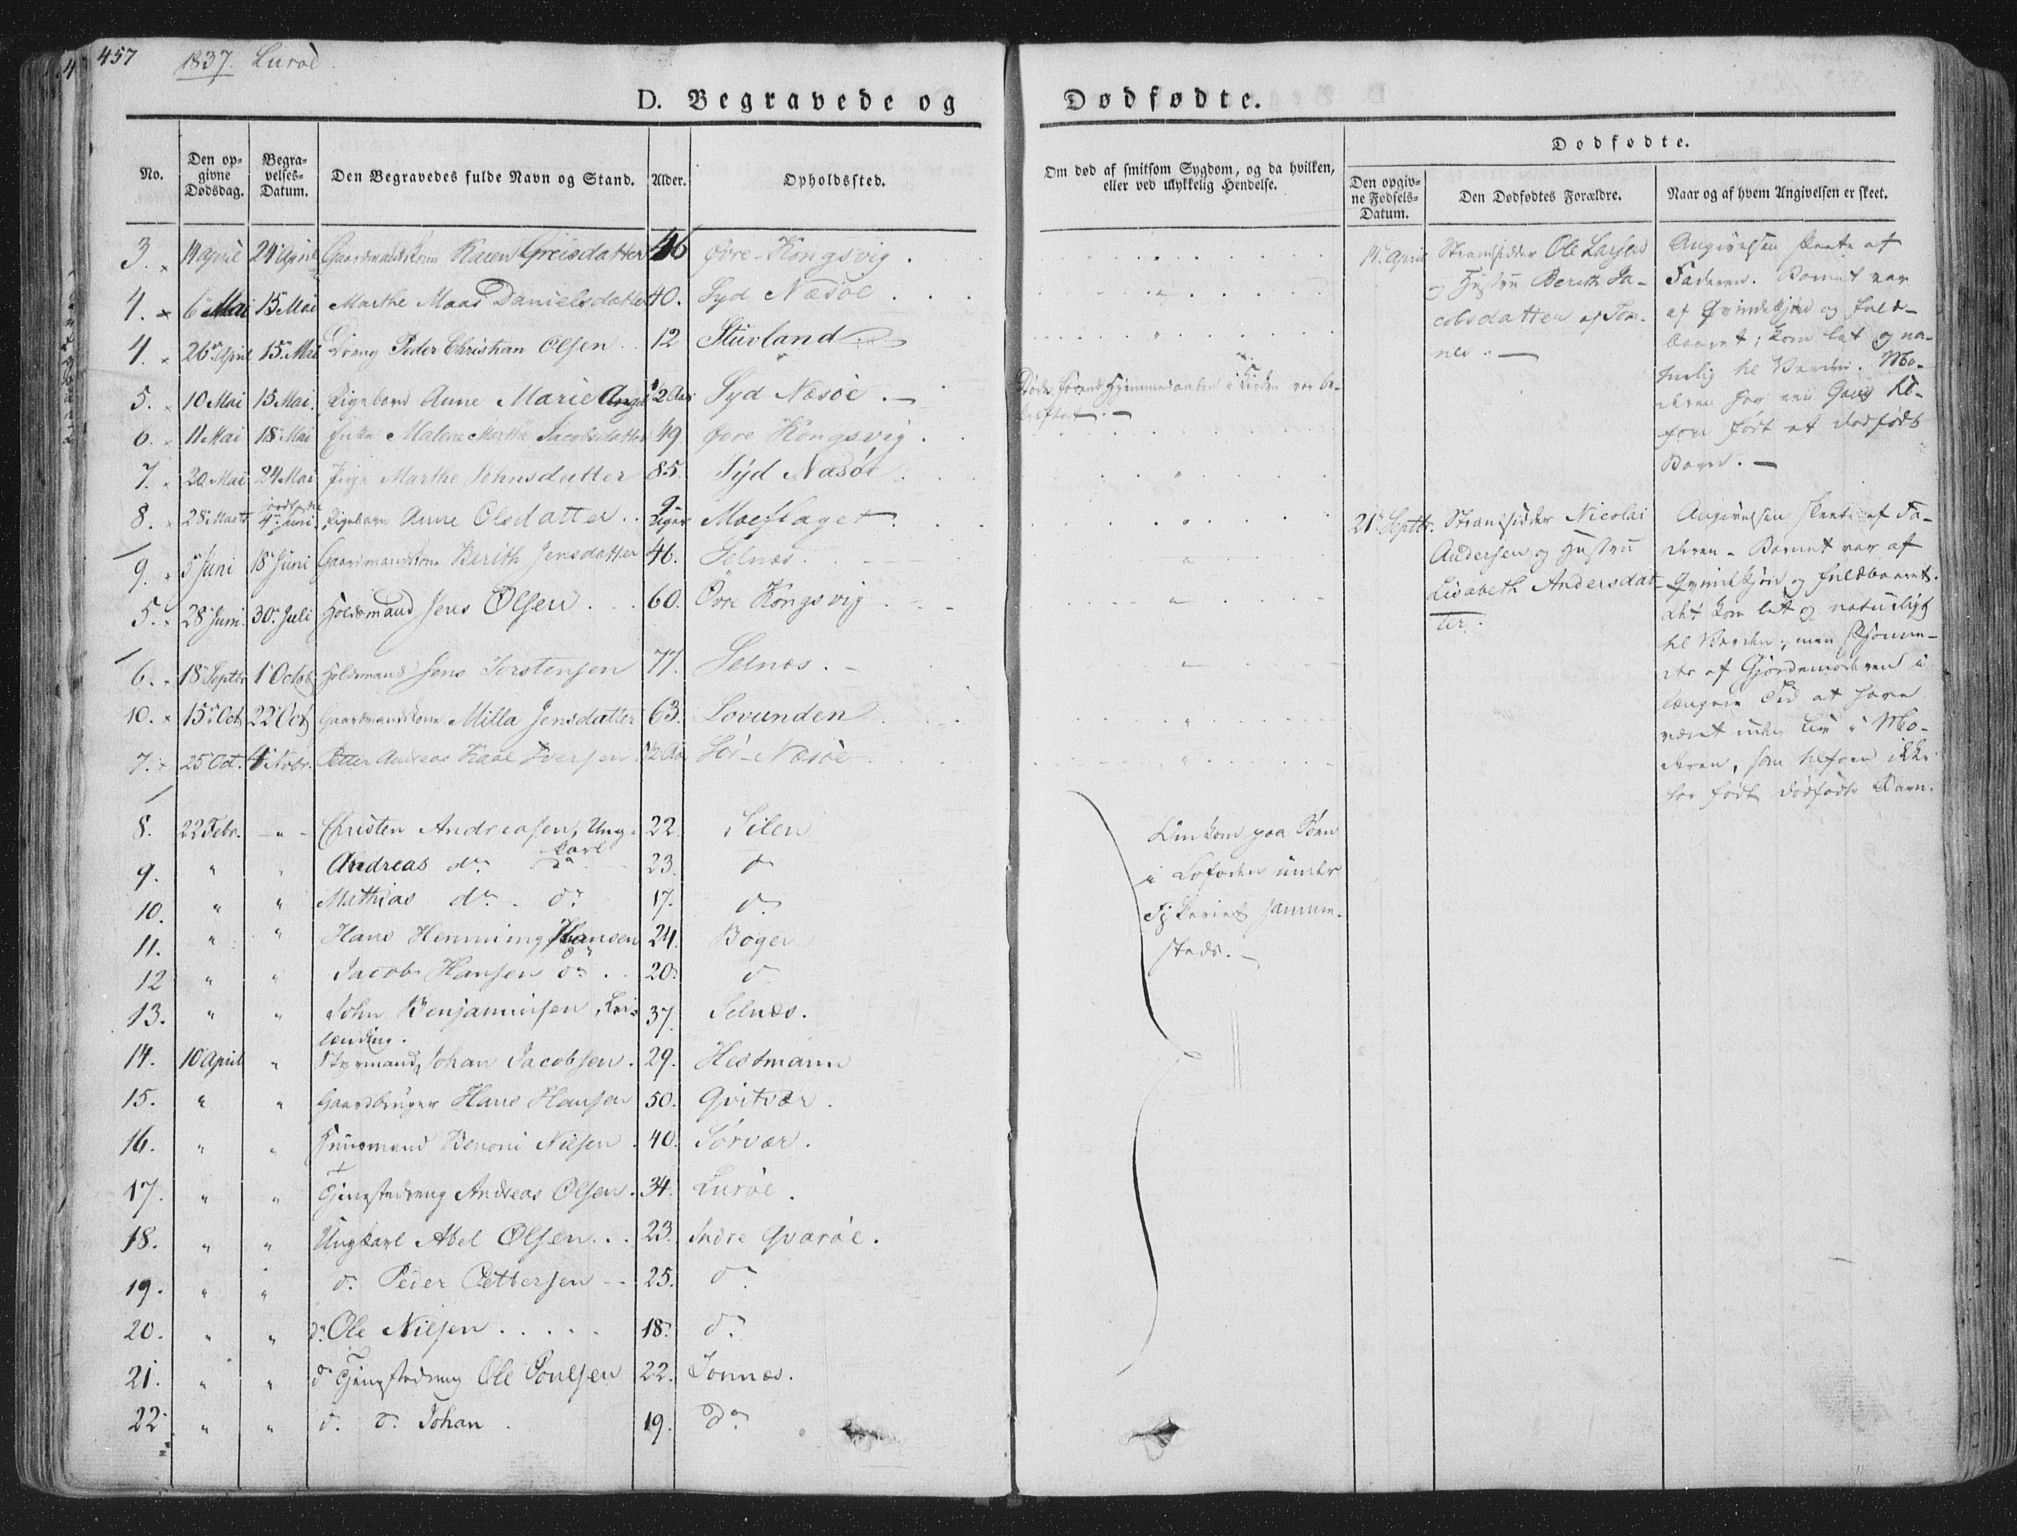 457 1837. Lurøe.
D. Begravede og Dødfødte.
No. | Den opgivne Dødsdag. | Begravelses-Datum. | Den Begravedes fulde Navn og Stand. | Alder. | Opholdssted. | Om død af smitsom Sygdom, og da hvilken, eller ved ulykkelig Hendelse.
Dødfødte.
Den opgivne Fødsels-Datum. | Den Dødfødtes Forældre. | Naar og af hvem Angivelsen er skeet.
3. 14 April 24 April Gaardmandskone Karen Greisdatter 46 Øvre-Kongsvig.
4. 6 Mai 15 Mai Marthe Maas Danielsdatter 40. Syd Næsøe
4. 26 April 15 Mai Dreng Peder Christian Olsen 12 Stuvland
5. 10 Mai 15 Mai. Pigebarn Anne Marie 1/2 Aar Syd Næsøe. Døde førend Hjemmedaaben i Kirken var bekræftet.
6. 11 Mai 18 Mai Enke Malene Marthe Jacobsdatter 49. Øvre Kongsvig.
7. 20 Mai 24 Mai Pige Marthe Johnsdatter 85. Syd Næsøe
8. 28 Marts 4 Juni. Pigebarn Anne Olsdatter 9 Uger Moeflaget.
9. 5 Juni 18 Juni Gaardmandskone Berith Jensdatter 46. Selnæs.
5. 28 Juni. 30 Juli Holdsmand Jens Olsen 60. Øvre Kongsvig
6. 18 Septbr 1 Octob Holdsmand Jens Torstensen 77. Selnæs.
10. 15 Oct 22 Oct Gaardmandskone Milla Jensdatter 63. Lovunden
7. 25 Oct. 4 Novbr. Petter Andreas Iversen 1/2 Aar Sør-Næsøe
8. 22 Febr. — " — Christen Andreasen, Ungkarl 22. Silen
9. " " Andreas do do 23. do
10. " " Mathias do. do 17. do
11. " " Hans Henning Hansen do 24. Boger
12 " " Jacob Hansen do 20. do
13. " " John Benjaminsen, Leilænding. 37. Selnæs.
14. 10 April " Styrmand, Johan Jacobsen. 29. Hestmann
15. " " Gaardbruger Hans Hansen 50. Qvitvær.
16. " " Huusmand Benoni Nielsen. 40. Sørvær.
17. " " Tjenestedreng Andreas Olsen. 34. Lurøe.
18. " " Ungkarl Abel Olsen. 23. Indre Qvarøe.
19. " " do. Peder Pettersen 25. do
20. " " do Ole Nilsen 18. do
21. " " do Tjenestedreng Ole Poulsen 22. Tonnes.
22. " " do do Johan 19. do
Omkom paa Søen
i Lofoden under
Fiskeriet sammesteds.
14 April Strandsidder Ole Larsen
og Hustru Berith Jacobsdatter
af Tonnes.
Angivelsen skeete af
Faderen. Barnet var
af Qvindekjøn og fuldbaaret;
kom let og naturlig
til Verden. Moderen
har een Gang tilforn
født et dødfødt
Barn.
21 Septbr. Strandsidder Nicolai
Andersen og Hustru
Lisabeth Andersdatter.
Angivelsen skeete af Faderen.
Barnet var af
Qvindekjøn og fuldbaaret.
Det kom let og naturligt
til Verden; men skjønnedes
af Gjordemoderen i
længere Tid at have
været uden Liv i Moderen,
som tilforn ikke
har født dødfødte Barn.